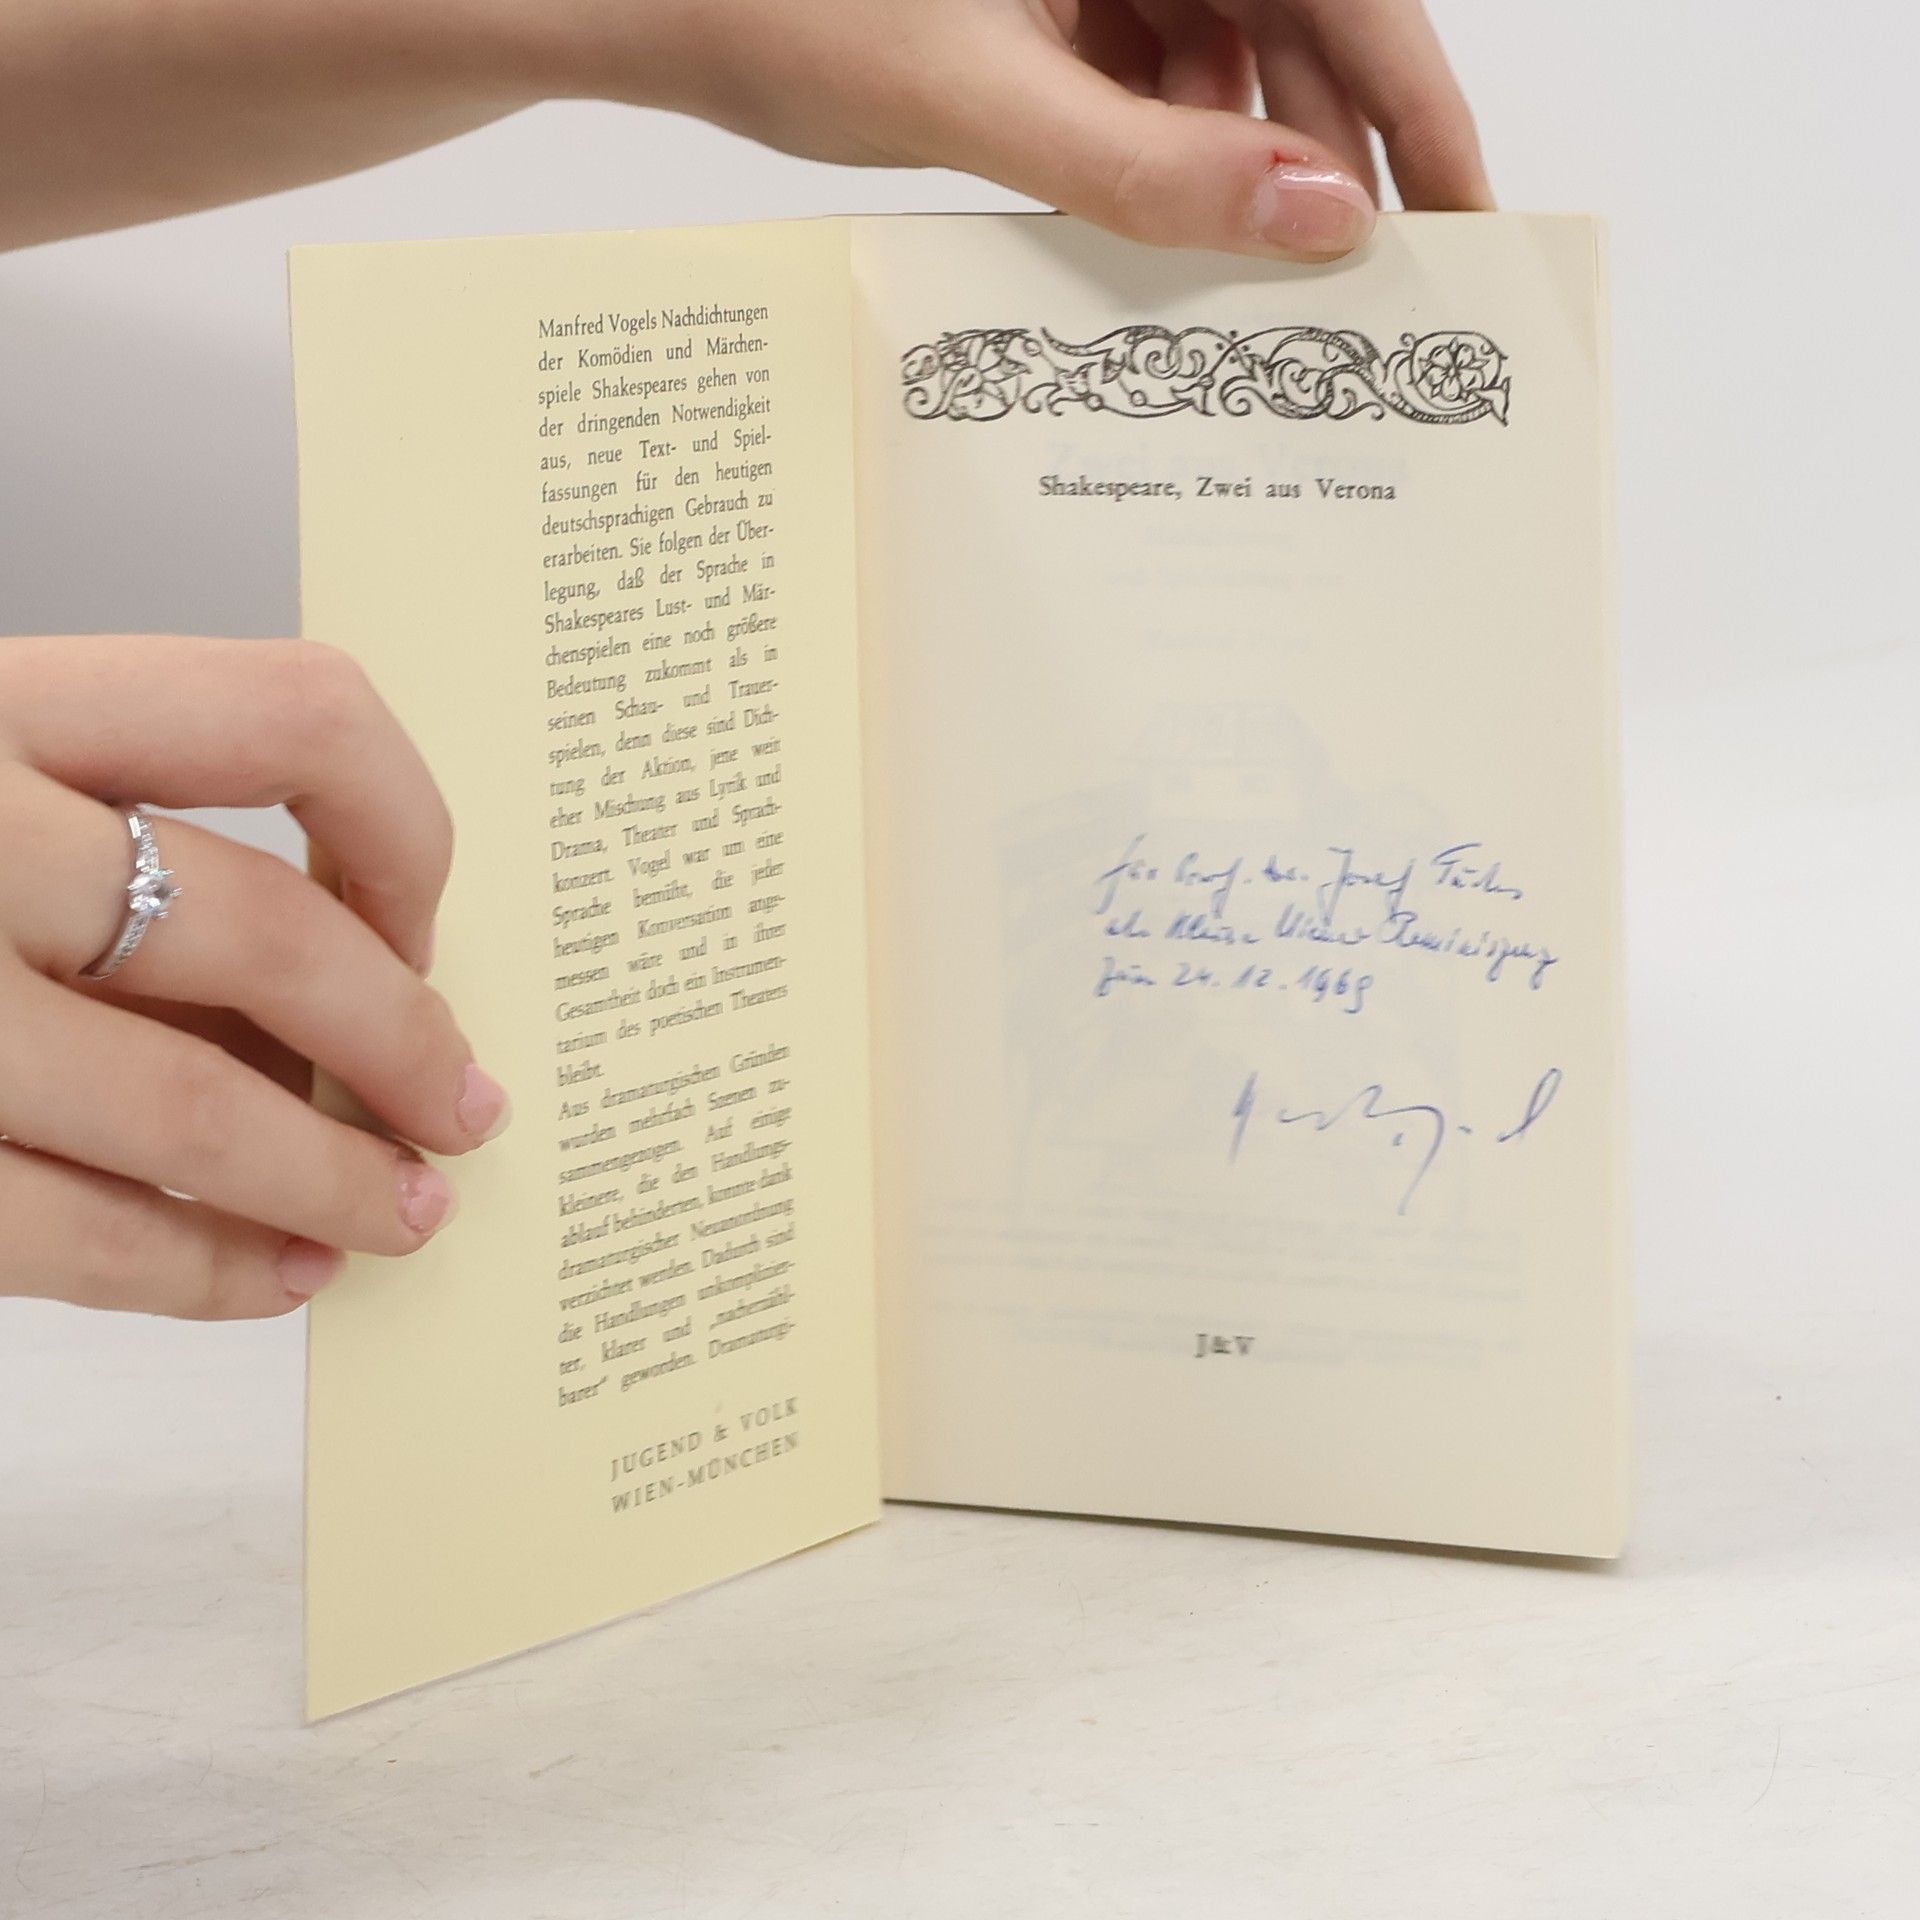 Manfred Vogels Nachdichtungen
der Komödien und Märchen-
spiele Shakespeares gehen von
der dringenden Notwendigkeit
aus, neue Text- und Spiel-
fassungen für den heutigen
deutschsprachigen Gebrauch zu
erarbeiten. Sie folgen der Über-
legung, daß der Sprache in
Shakespeares Lust- und Mär-
chenspielen eine noch größere
Bedeutung zukommt als in
seinen Schau- und Trauer-
spielen, denn diese sind Dich-
tung der Aktion, jene weit
eher Mischung aus Lyrik und
Drama, Theater und Sprach-
konzert. Vogel war um eine
Sprache bemüht, die jeder
heutigen Konversation ange-
messen wäre und in ihrer
Gesamtheit doch ein Instrumen-
tarium des poetischen Theaters
bleibt.
Aus dramaturgischen Gründen
wurden mehrfach Szenen zu-
sammengezogen. Auf einige
kleinere, die den Handlungs-
ablauf behinderten, konnte dank
dramaturgischer Neuanordnung
verzichtet werden. Dadurch sind
die Handlungen unkomplizier-
ter, klarer und „nacherzähl-
barer“ geworden. Dramaturgi-
JUGEND & VOLK
WIEN-MÜNCHEN
Shakespeare, Zwei aus Verona
für Prof. Dr. Josef Fuchs
als kleine Wiener
zum 24.12.1969
J&V